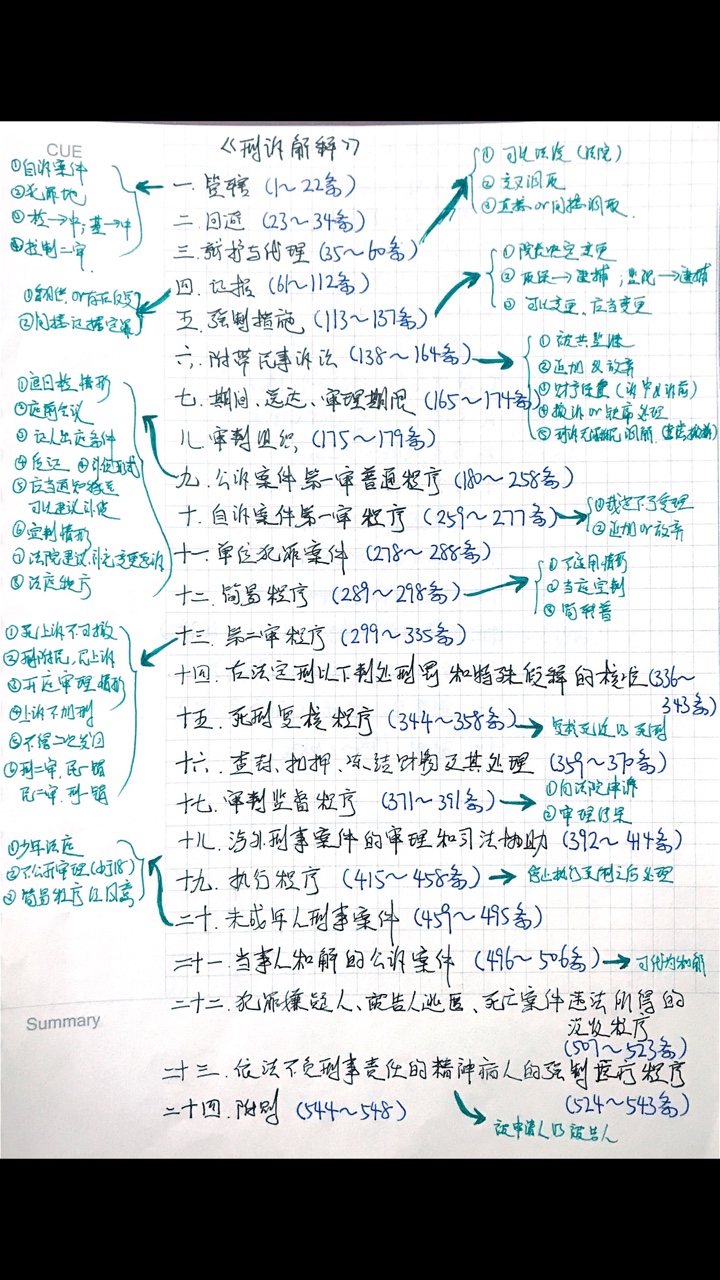 CUE
《刑诉解释》
①自诉案件
②犯罪地
③检→中；基→中
④控制二审
一.管辖（1～22条）
①可以法援（法院）
②主动调取
③直接or间接调取
二.回避（23～34条）
三.辩护与代理（35～60条）
①院长决定变更
②取保→逮捕；监视→逮捕
③可以变更、应当变更
四.证据（61～112条）
②间接证据定罪
五.强制措施（113～137条）
六.附带民事诉讼（138～164条）
①被共监继
②追加&放弃
③财产保全（诉中&诉前）
④撤诉or缺席处理
七.期间、送达、审理期限（165～174条）
八.审判组织（175～179条）
②庭前会议
③证人出庭条件
可以建议补侦
⑥定判情形
⑧法庭秩序
九.公诉案件第一审普通程序（180～258条）
十.自诉案件第一审程序（259～277条）
①裁定不予受理
②追加or放弃
十一.单位犯罪案件（278～288条）
十二.简易程序（289～298条）
①不适用情形
②当庭宣判
③简转普
①死上诉不可撤
②刑附民，民上诉
③开庭审理情形
④上诉不加刑
⑤不得二次发回
⑥刑二审，民一错
民二审，刑一错
十三.第二审程序（299～335条）
十四.在法定刑以下判处刑罚和特殊假释的核准（336～343条）
十五.死刑复核程序（344～358条）
复核死缓VS死刑
十六.查封、扣押、冻结财物及其处理（359～370条）
十七.审判监督程序（371～391条）
①向法院申诉
②审理结果
十八.涉外刑事案件的审理和司法协助（392～414条）
十九.执行程序（415～458条）
停止执行死刑之后处理
①少年法庭
②不公开审理（小于18）
③简易程序征得同意
二十.未成年人刑事案件（459～495条）
二十一.当事人和解的公诉案件（496～506条）
可代为和解
Summary
二十二.犯罪嫌疑人、被告人逃匿、死亡案件违法所得的
没收程序
（507～523条）
二十三.依法不负刑事责任的精神病人的强制医疗程序
（524～543条）
二十四.附则（544～548）
被申请人VS被告人